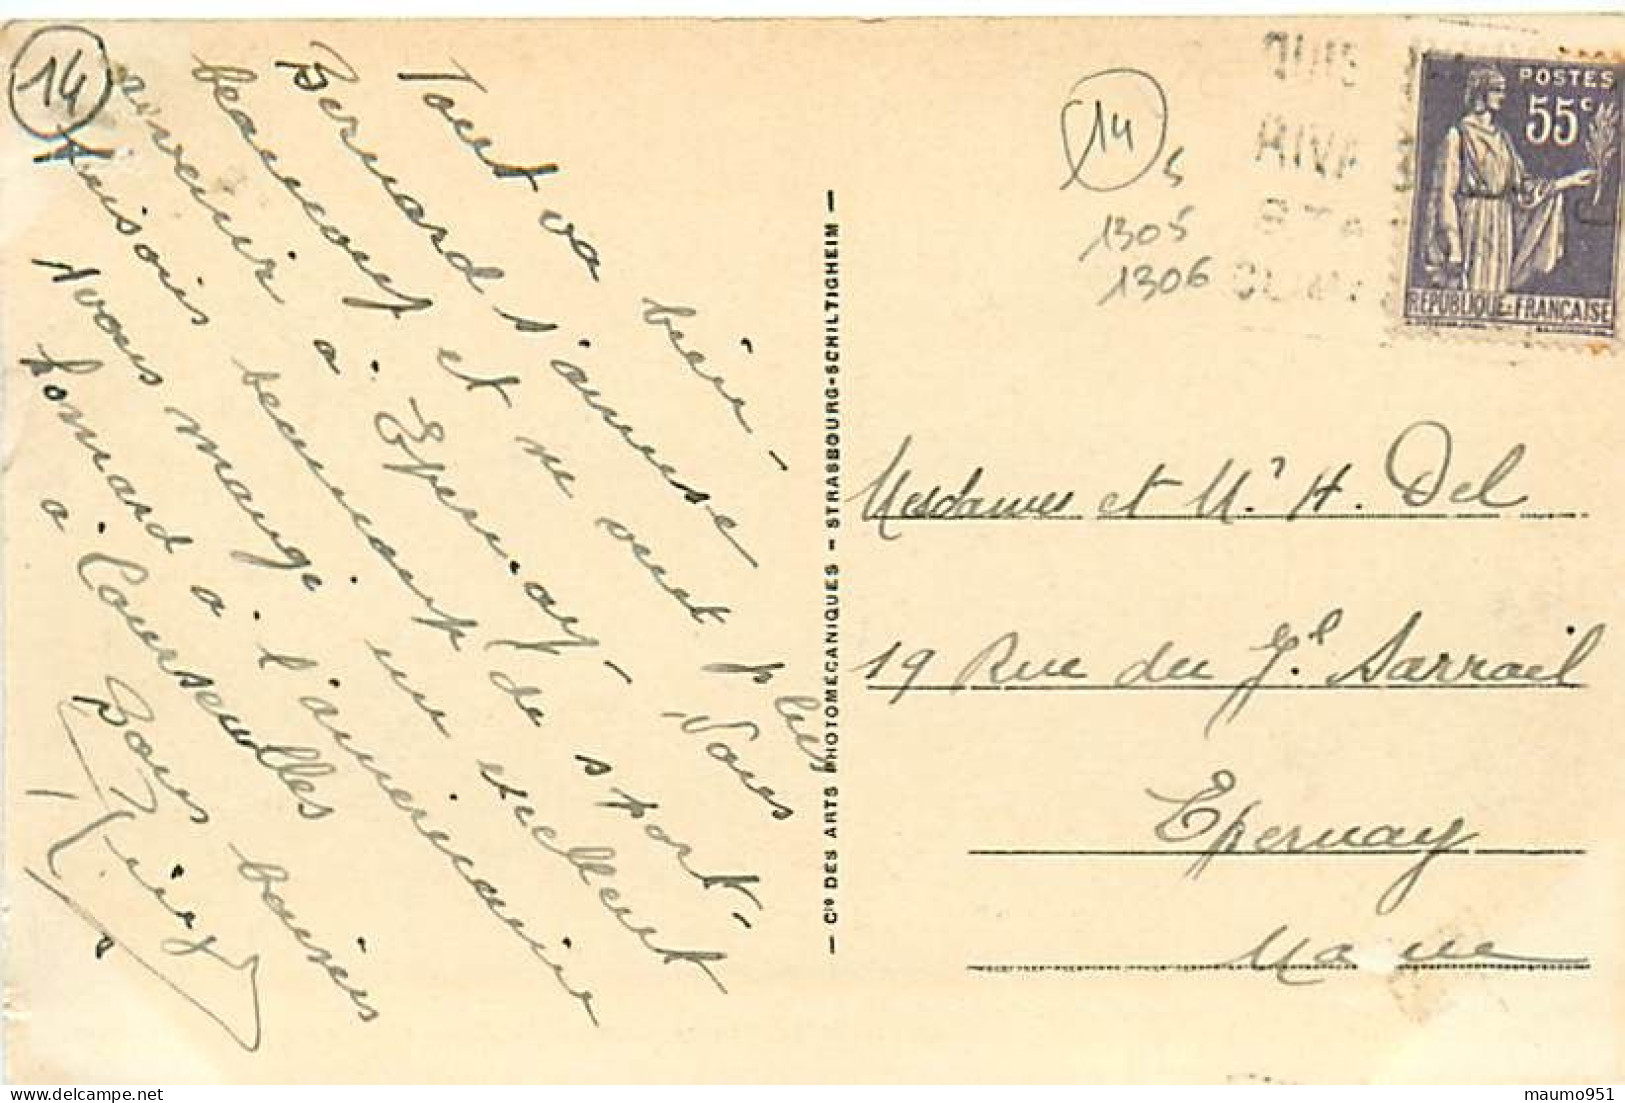 14
Tout va bien -
Bernard s'amuse
beaucoup et ne veut plus
revenir à Epernay - Nous
faisons beaucoup de sport -
Avons mangé un excellent
homard à l'américaine
à Courseulles
Bons baisers
14
5
1305
1306
POSTES
55c
REPUBLIQUE-FRANÇAISE
— Cie DES ARTS PHOTOMÉCANIQUES — STRASBOURG-SCHILTIGHEIM —
Mesdames et Mr H. Del
19 Rue du Gl Sarrail
Epernay
Marne
maumo951